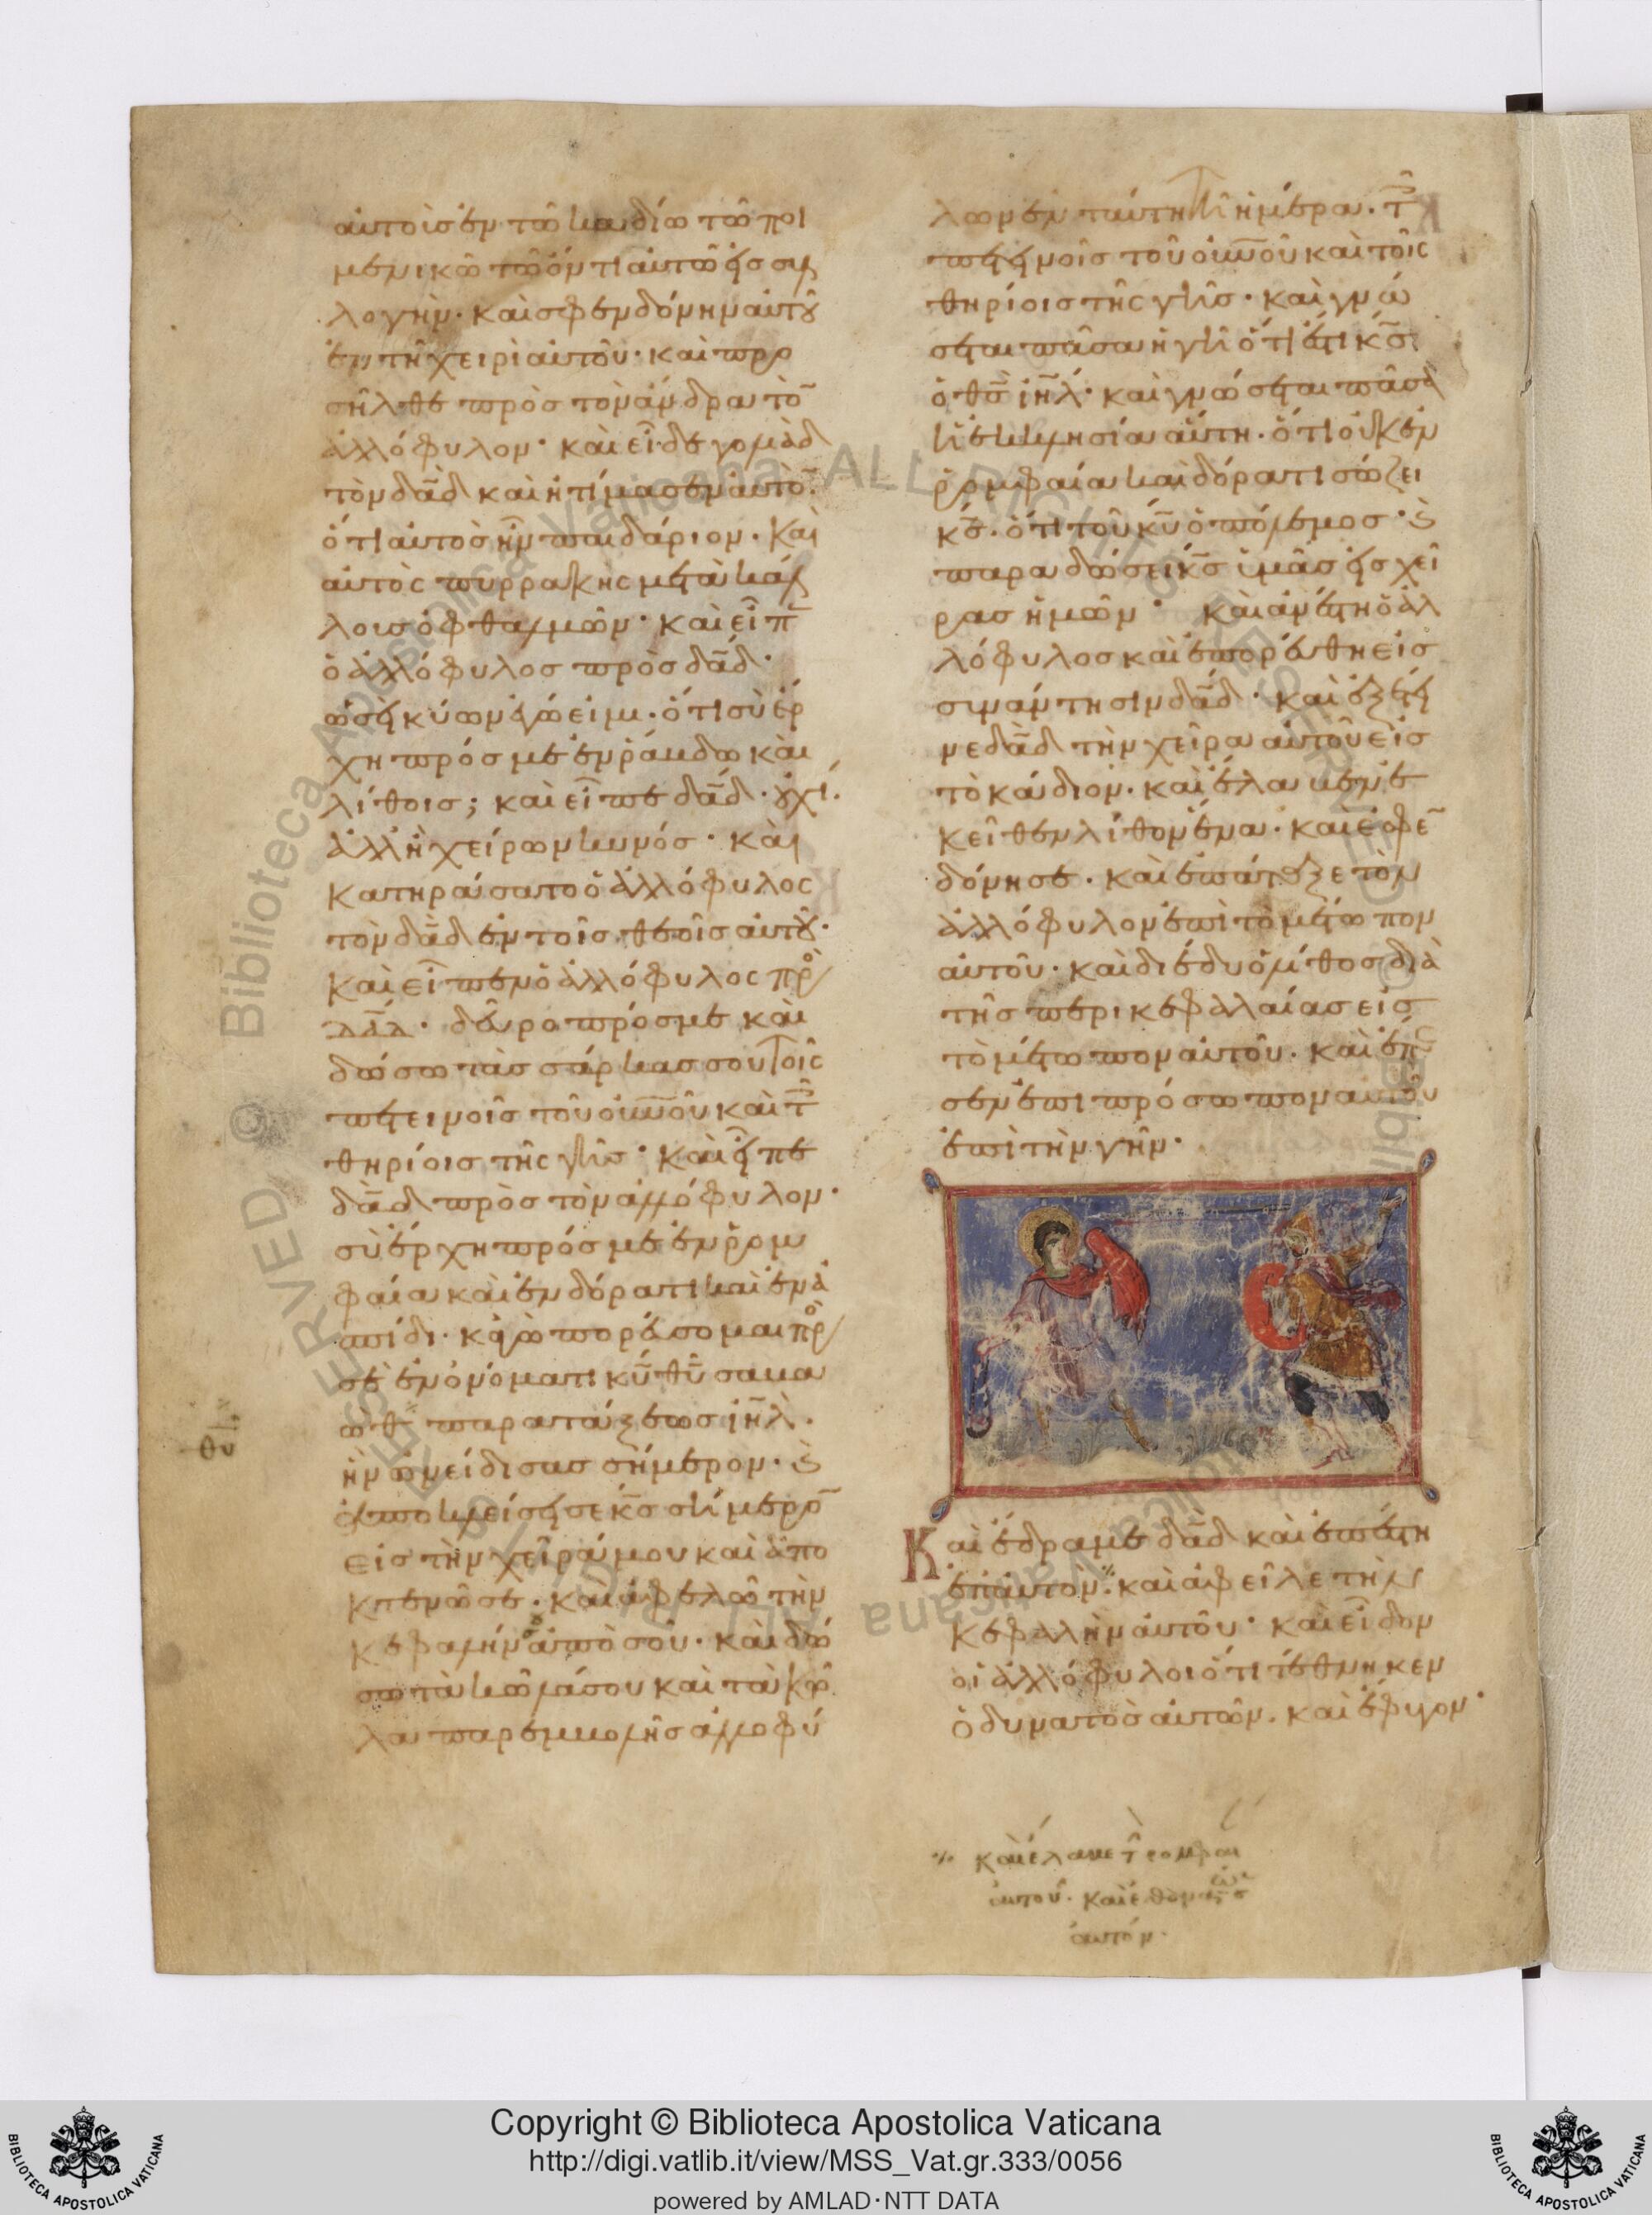 αὐτοῖς ἐν τῶ καδίω τῶ ποι
μενικῶ τῶ ὄντι αὐτῶ εἰς συλ
λογήν· καὶ σφενδόνην αὐτοῦ
ἐν τῆ χειρὶ αὐτοῦ· καὶ προ
σῆλθε πρὸς τὸν ἄνδρα τὸ̄
ἀλλόφυλον· καὶ εἶδε γολιὰδ
τὸν δᾱδ καὶ ἠτίμασεν αὐτὸ̄·
ὅτι αὐτὸς ἦν παιδάριον· καὶ
αὐτὸς πυρράκης μετὰ κάλ
λους ὀφθαλμῶν· καὶ εἶπ̄
ὁ ἀλλόφυλος πρὸς δᾱδ·
ὡσεὶ κύων ἐγώ εἰμι· ὅτι σὺ ἔρ
χη πρός με ἐν ῥάβδω καὶ
λίθοις; καὶ εἶπε δᾱδ· οὐχί·
ἀλλ' ἢ χείρων κυνός· καὶ
κατηράσατο ὁ ἀλλόφυλος
τὸν δᾱδ ἐν τοῖς θεοῖς αὐτοῦ·
καὶ εἶπεν ὁ ἀλλόφυλος πρὸς
δᾱδ· δεῦρο πρός με καὶ
δώσω τὰς σάρκας σου τοῖς
πετεινοῖς τοῦ οὐ̅ν̅οῦ καὶ τ̄
θηρίοις τῆς γῆς· καὶ εἶπε
δᾱδ πρὸς τὸν ἀλλόφυλον·
σὺ ἔρχη πρός με ἐν ῥομ
φαία καὶ ἐν δόρατι καὶ ἐν ἀ
σπίδι· κἀγὼ πορεύσομαι πρὸς
σὲ ἐν ὀνόματι κ̅υ̅ θ̅υ̅ σαβα
ὼθ παρατάξεως ἰη̅λ·
ἣν ὠνείδισας σήμερον· καὶ
ἀποκλείσει σε κ̅ς̅ σήμερο̄
εἰς τὴν χεῖρά μου καὶ ἀπο
κτενῶ σε· καὶ ἀφελῶ τὴν
κεφαλήν ἀπὸ σοῦ· καὶ δώ
σω τὰ κῶλά σου καὶ τὰ κῶ
λα παρεμβολῆς ἀλλοφύ
λων ἐν ταύτη τῆ ἡμέρα· τ̄
πετεινοῖς τοῦ οὐ̅ν̅οῦ καὶ τοῖς
θηρίοις τῆς γῆς· καὶ γνώ
σεται πᾶσα ἡ γῆ ὅτι ἔστι κ̅ς̅
ὁ θ̅ς̅ ἰη̅λ· καὶ γνώσεται πᾶσα
ἡ ἐκκλησία αὕτη· ὅτι οὐκ ἐν
ῥομφαία καὶ δόρατι σώζει
κ̅ς̅· ὅτι τοῦ κ̅υ̅ ὁ πόλεμος· καὶ
παραδώσει κ̅ς̅ ὑμᾶς εἰς χεῖ
ρας ἡμῶν· καὶ ἀνέστη ὁ ἀλ
λόφυλος καὶ ἐπορεύθη εἰς
συνάντησιν δᾱδ· καὶ ἐξέτει
νε δᾱδ τὴν χεῖρα αὐτοῦ εἰς
τὸ κάδιον· καὶ ἔλαβεν ἐ
κεῖθεν λίθον ἕνα· καὶ ἐσφε̄
δόνησε· καὶ ἐπάταξε τὸν
ἀλλόφυλον ἐπὶ τὸ μέτωπον
αὐτοῦ· καὶ διέδυ ὁ λίθος διὰ
τῆς περικεφαλαίας εἰς
τὸ μέτωπον αὐτοῦ· καὶ ἔπε
σεν ἐπὶ πρόσωπον αὐτοῦ
ἐπὶ τὴν γῆν·
Καὶ ἔδραμε δᾱδ καὶ ἐπέστη
ἐπ' αὐτον· καὶ ἀφεῖλε τὴν
κεφαλὴν αὐτοῦ· καὶ εἶδον
οἱ ἀλλόφυλοι ὅτι τέθνηκεν
ὁ δυνατὸς αὐτῶν· καὶ ἔφυγον·
καὶ ἔλαβε τ̄ ρομφαί
αὐτοῦ· καὶ ἐθανάτωσε
αὐτόν·
Copyright © Biblioteca Apostolica Vaticana
http://digi.vatlib.it/view/MSS_Vat.gr.333/0056
powered by AMLAD·NTT DATA
BIBLIOTECA APOSTOLICA VATICANA
BIBLIOTECA APOSTOLICA VATICANA